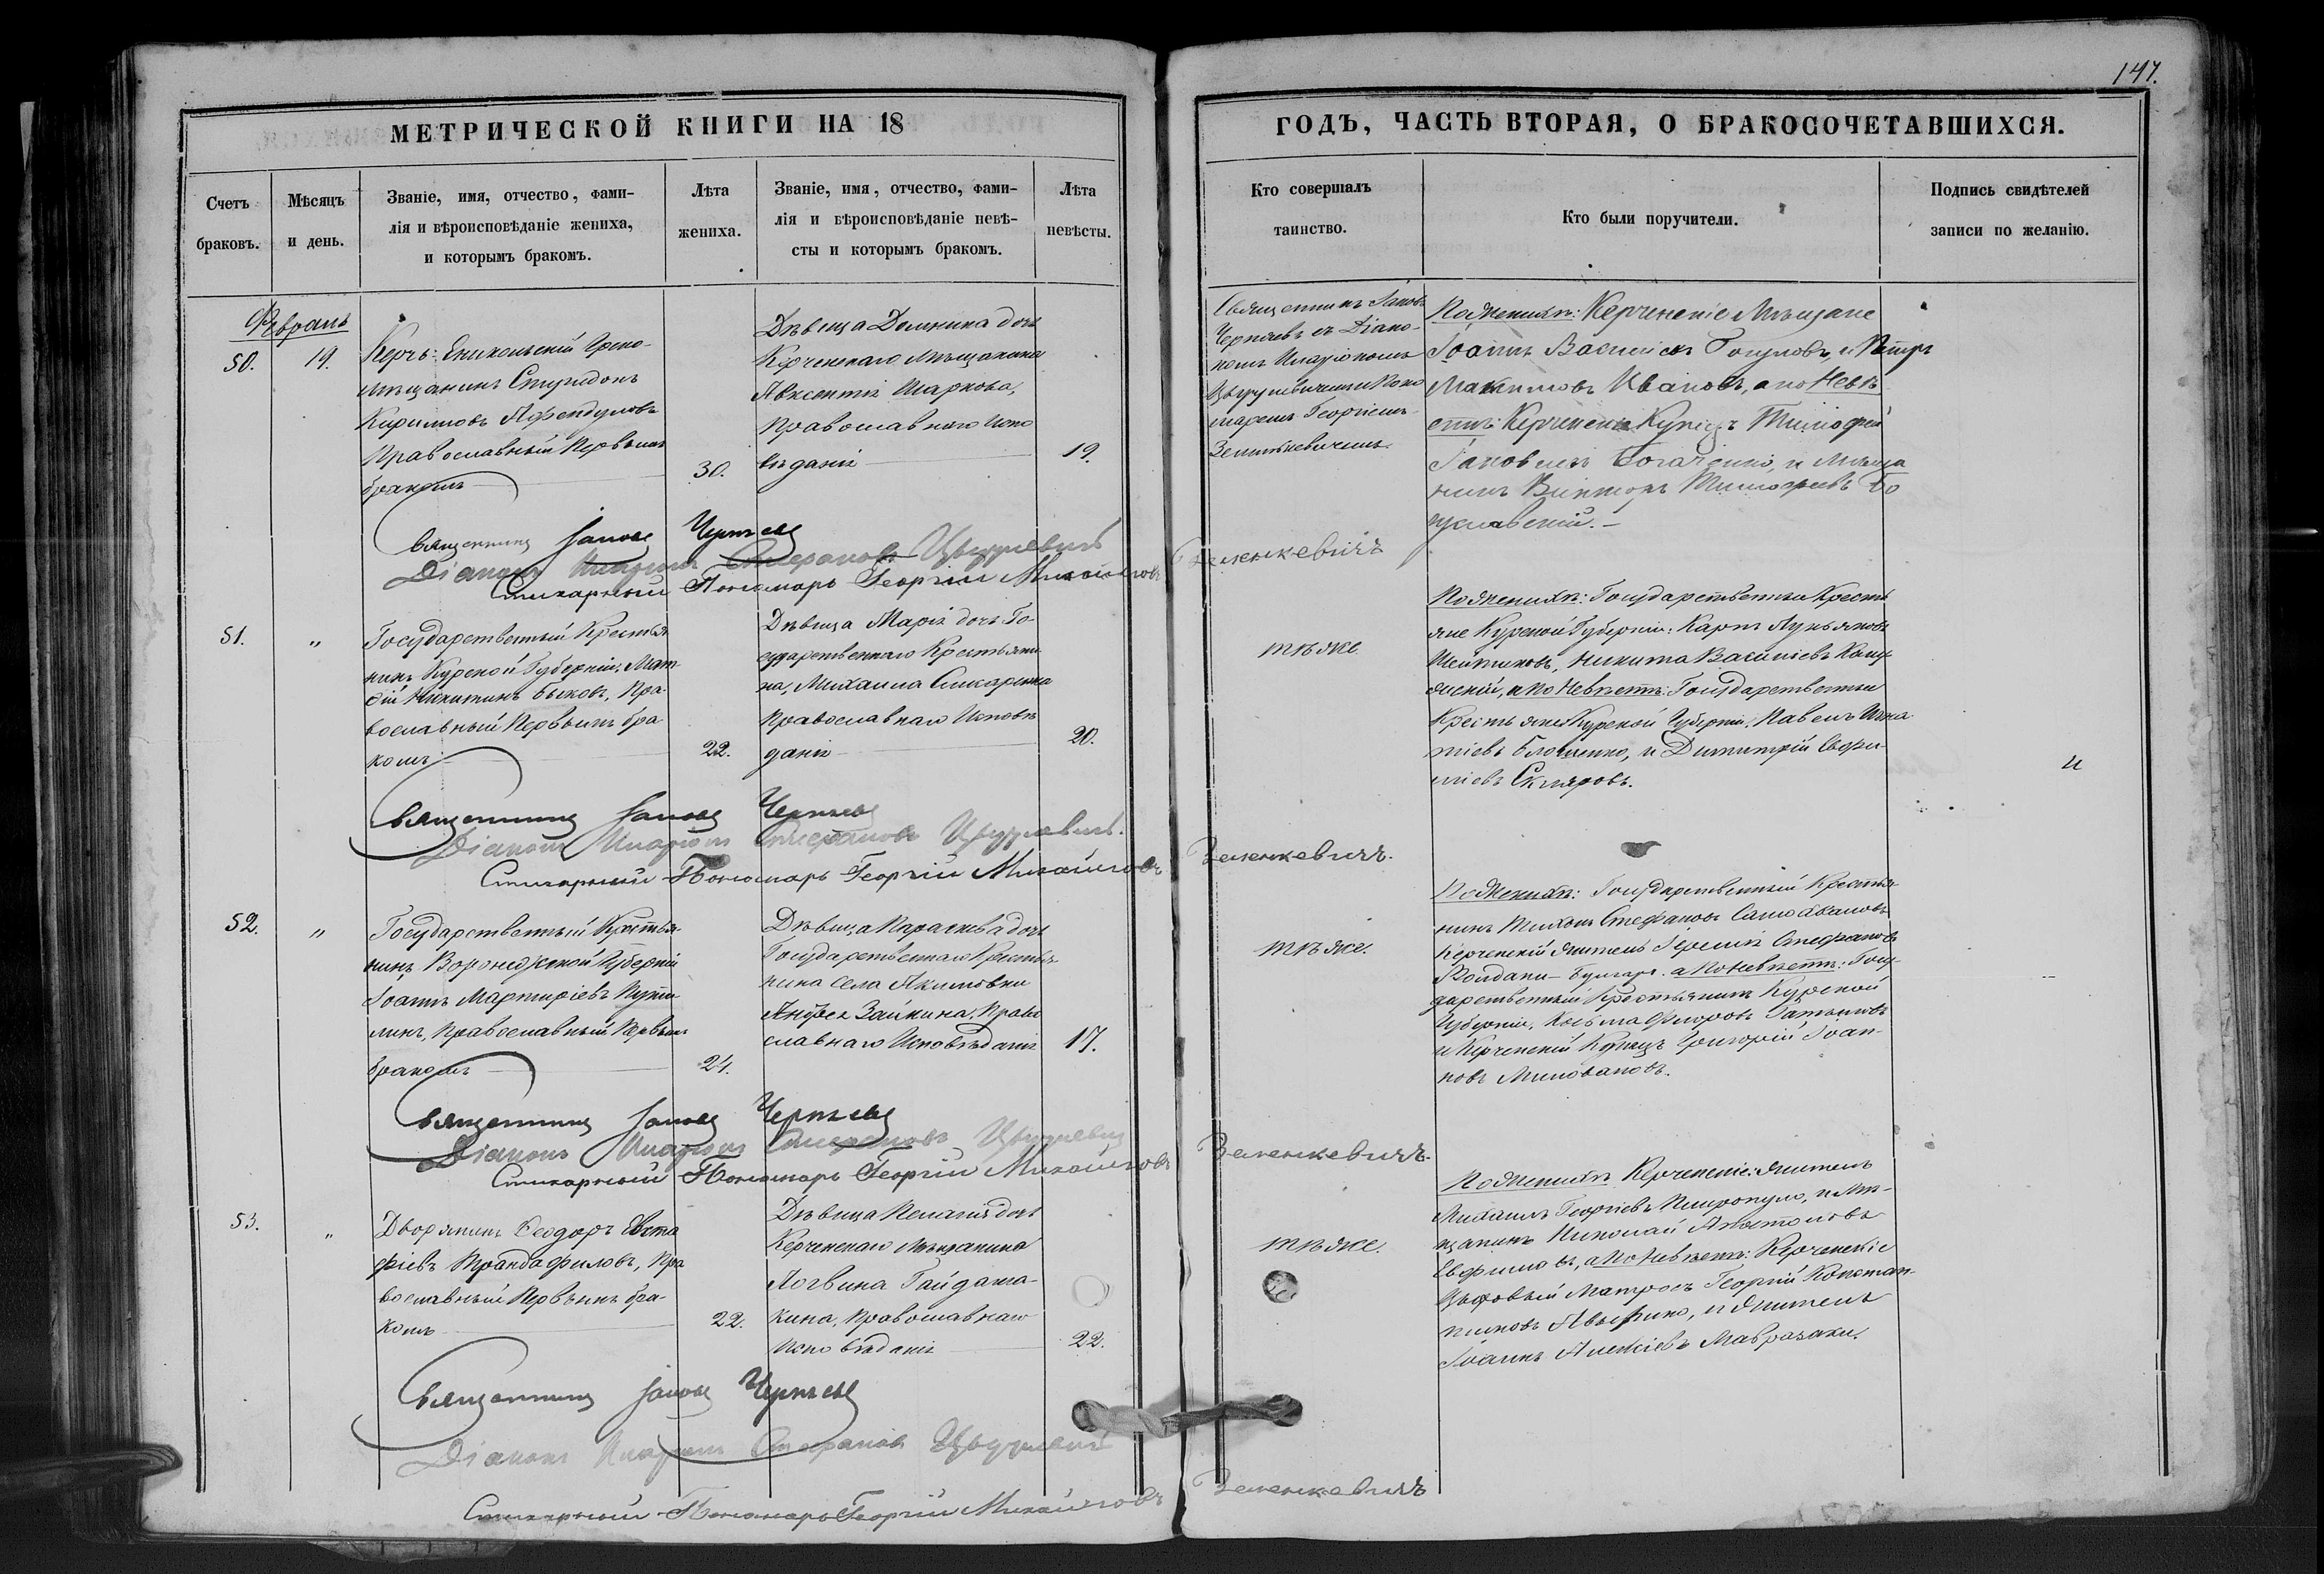 147.
МЕТРИЧЕСКОЙ КНИГИ НА 18
ГОДЪ, ЧАСТЬ ВТОРАЯ, О БРАКОСОЧЕТАВШИХСЯ.
Счетъ
браковъ.
Мѣсяцъ
и день.
Званіе, имя, отчество, фами-
лія и вѣроисповѣданіе жениха,
и которымъ бракомъ.
Лѣта
жениха.
Званіе, имя, отчество, фами-
лія и вѣроисповѣданіе невѣ-
сты и которымъ бракомъ.
Лѣта
невѣсты.
Кто совершалъ
таинство.
Кто были поручители.
Подпись свидѣтелей
записи по желанію.
Февраль
50.
19.
Керчь-Еникольскій Греко-
мѣщанинъ Спиридонъ
Кириловъ Афендуловъ
Православный Первымъ
бракомъ
30.
Дѣвица Домникия дочь
Керченскаго мѣщанина
Авксентія Шаркова,
Православнаго Испо
вѣданія
19.
Священникъ Іаковъ
Черняевъ съ Діако-
номъ Иларіономъ
и Поно
маремъ Георгіемъ
Зеленкевичемъ
По Женихѣ: Керченскіе Мѣщане
Іоаннъ Василіевъ и Петръ
Максимовъ Ивановъ, а по Невѣ
стѣ: Керченскій Купецъ Тимофей
Іаковлевъ и мѣща
нинъ Викторъ Тимофеевъ Бо
гуславскій.
Священникъ Іаковъ Черняевъ
Діаконъ Иларіонъ Стефановъ
Стихарный Пономарь Георгій Михайловъ Зеленкевичъ
51.
"
Государственный Крестья
нинъ Курской Губерніи, Мат-
фій Никитинъ Быковъ, Пра-
вославный Первымъ бра
комъ
22.
Дѣвица Марія дочь Го-
сударственнаго Крестьяни
на, Михаила
Православнаго Исповѣ
данія
20.
тѣже.
По Женихѣ: Государственные Кресть
яне Курской Губерніи: Карпъ Лукьяновъ
Никита Василіевъ
а по Невѣстѣ: Государственные
Крестьяне Курской Губерніи. Павелъ Игна
тіевъ и Димитрій
Скляровъ.
Священникъ Іаковъ Черняевъ
Діаконъ Иларіонъ Стефановъ
Стихарный Пономарь Георгій Михайловъ Зеленкевичъ.
52.
"
Государственный Крестья
нинъ Воронежской Губерніи
Іоаннъ Мартиріевъ
линъ, Православный Первымъ
бракомъ
24.
Дѣвица Параскева дочь
Государственнаго Крестья
нина Села Акимовки
Андрея Заикина, Право
славнаго Исповѣданія
17.
тѣже.
По Женихѣ: Государственный Крестья
нинъ Тихонъ Стефановъ
Керченскій житель Стефановъ
а По Невѣстѣ: Госу-
дарственный Крестьянинъ Курской
Губерніи, Косьма Флоровъ
и Керченскій Купецъ Григорій Іоан-
новъ Миловановъ.
Священникъ Іаковъ Черняевъ
Діаконъ Иларіонъ Стефановъ
Стихарный Пономарь Георгій Михайловъ Зеленкевичъ.
53.
"
Дворянинъ Феодоръ Евста
фіевъ Трандафиловъ, Пра
вославный Первымъ бра-
комъ
22.
Дѣвица Пелагія дочь
Керченскаго мѣщанина
Логвина Гайдама-
кина, Православнаго
Исповѣданія
22.
тѣже.
По Женихѣ Керченскіе: житель
Михаилъ Георгіевъ и Мѣ-
щанинъ Николай Апостоловъ
Евфимовъ, а По Невѣстѣ: Керченскіе
Матросъ Георгій Констан-
тиновъ и житель
Іоаннъ Алексіевъ Мавромаки.
Священникъ Іаковъ Черняевъ
Діаконъ Иларіонъ Стефановъ
Стихарный Пономарь Георгій Михайловъ Зеленкевичъ